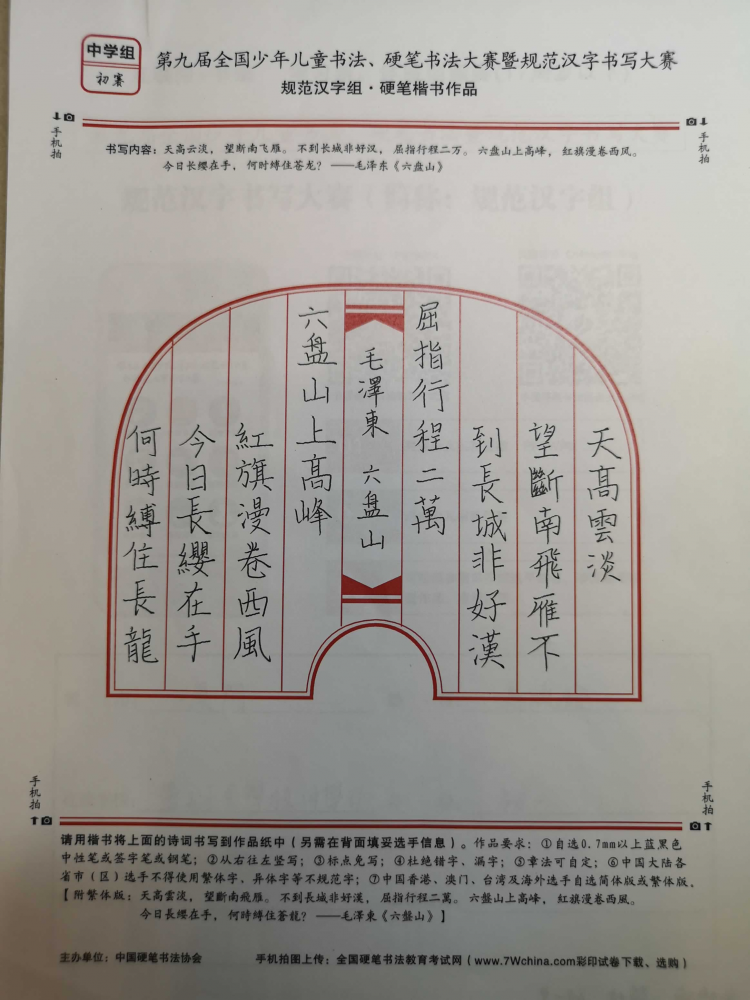 中学组
初赛
第九届全国少年儿童书法、硬笔书法大赛暨规范汉字书写大赛
规范汉字组·硬笔楷书作品
手机拍
手机拍
书写内容：天高云淡，望断南飞雁。不到长城非好汉，屈指行程二万。六盘山上高峰，红旗漫卷西风。
今日长缨在手，何时缚住苍龙？——毛泽东《六盘山》
天高雲淡
望斷南飛雁不
到長城非好漢
屈指行程二萬
毛澤東 六盘山
六盘山上高峰
紅旗漫卷西風
今日長纓在手
何時縛住長龍
手机拍
手机拍
请用楷书将上面的诗词书写到作品纸中（另需在背面填妥选手信息）。作品要求：①自选0.7mm以上蓝黑色
中性笔或签字笔或钢笔；②从右往左竖写；③标点免写；④杜绝错字、漏字；⑤章法可自定；⑥中国大陆各
省市（区）选手不得使用繁体字、异体字等不规范字；⑦中国香港、澳门、台湾及海外选手自选简体版或繁体版。
【附繁体版：天高雲淡，望斷南飛雁。不到長城非好漢，屈指行程二萬。六盤山上高峰，紅旗漫卷西風。
今日長纓在手，何時縛住蒼龍？——毛澤東《六盤山》】
主办单位：中国硬笔书法协会
手机拍图上传：全国硬笔书法教育考试网（www.7Wchina.com彩印试卷下载、选购）